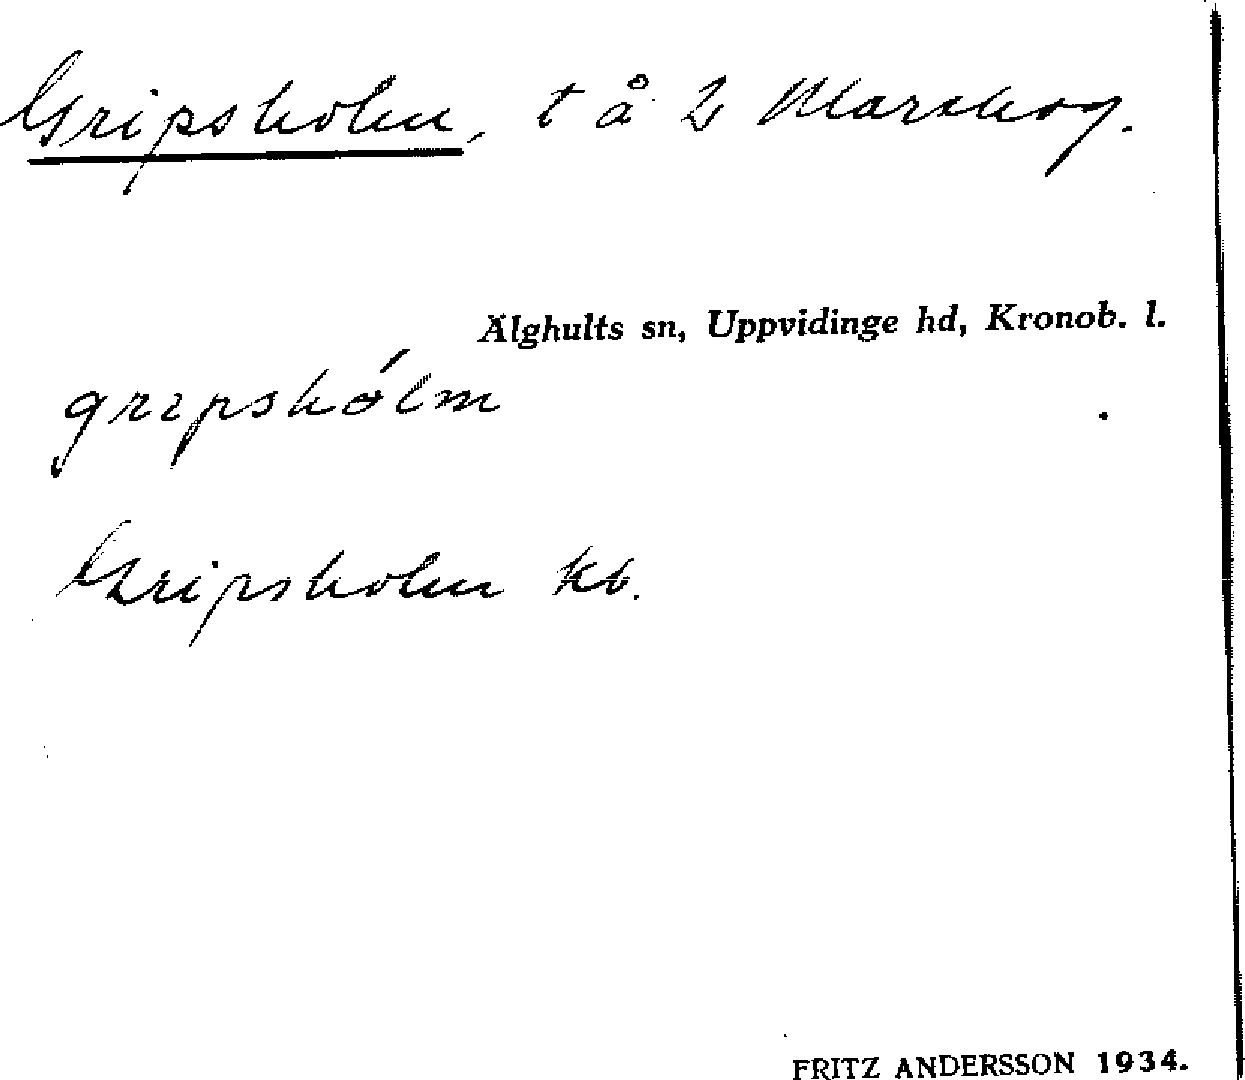 Gripsholm, t å 2 Marskog.
Älghults sn, Uppvidinge hd, Kronob. l.
gripshólm
Gripsholm kb.
FRITZ ANDERSSON 1934.